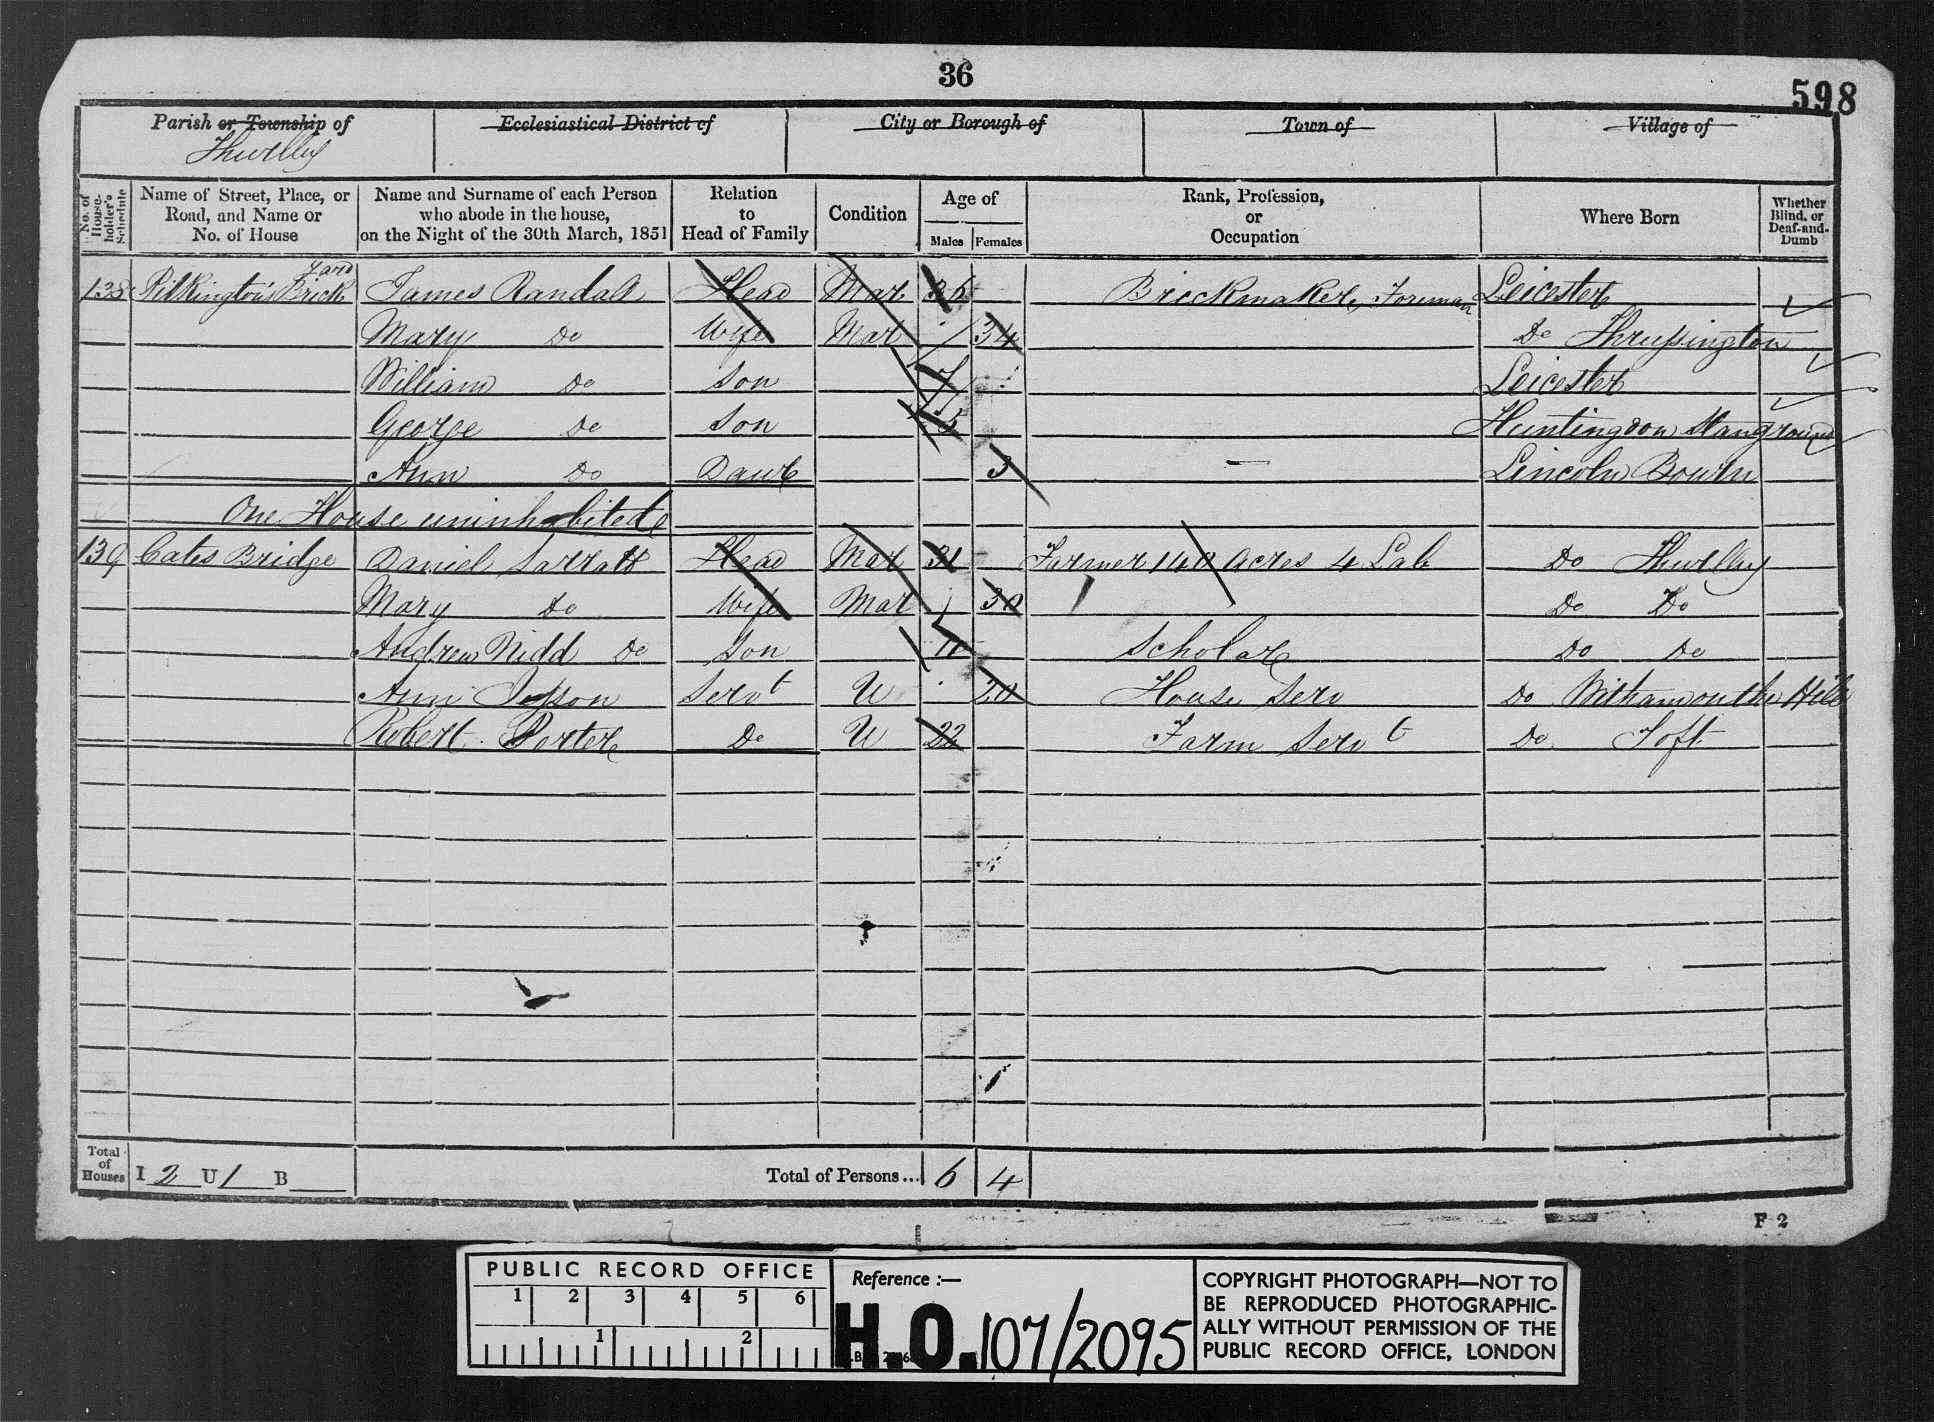 36
598
Parish or Township of
Ecclesiastical District of
City or Borough of
Town of
Village of
Thurlby
No. of House-holder's Schedule
Name of Street, Place, or Road, and Name or No. of House
Name and Surname of each Person who abode in the house, on the Night of the 30th March, 1851
Relation to Head of Family
Condition
Age of
Males Females
Rank, Profession, or Occupation
Where Born
Whether Blind, or Deaf-and-Dumb
138 Pilkington's Brick Yard James Randall Head Mar 36 Brickmaker, Foreman Leicester
Mary Do Wife Mar 34 Do Thrussington
William Do Son 7 Leicester
George Do Son 5 Huntingdon Stanground
Ann Do Daur 3 Lincoln Bourn
One House uninhabited
139 Cates Bridge Daniel Sarratt Head Mar 31 Farmer 140 Acres 4 Lab Do Thurlby
Mary Do Wife Mar 30 Do Do
Andrew Nidd Do Son 11 Scholar Do Do
Ann Servt U 20 House Serv Do Witham on the Hill
Robert Porter Do U 22 Farm Servt Do Toft
Total of Houses I 2 U 1 B Total of Persons... 6 4
F 2
PUBLIC RECORD OFFICE
1 2 3 4 5 6
1 2
Reference :—
H.O. 107/2095
COPYRIGHT PHOTOGRAPH—NOT TO
BE REPRODUCED PHOTOGRAPHIC-
ALLY WITHOUT PERMISSION OF THE
PUBLIC RECORD OFFICE, LONDON